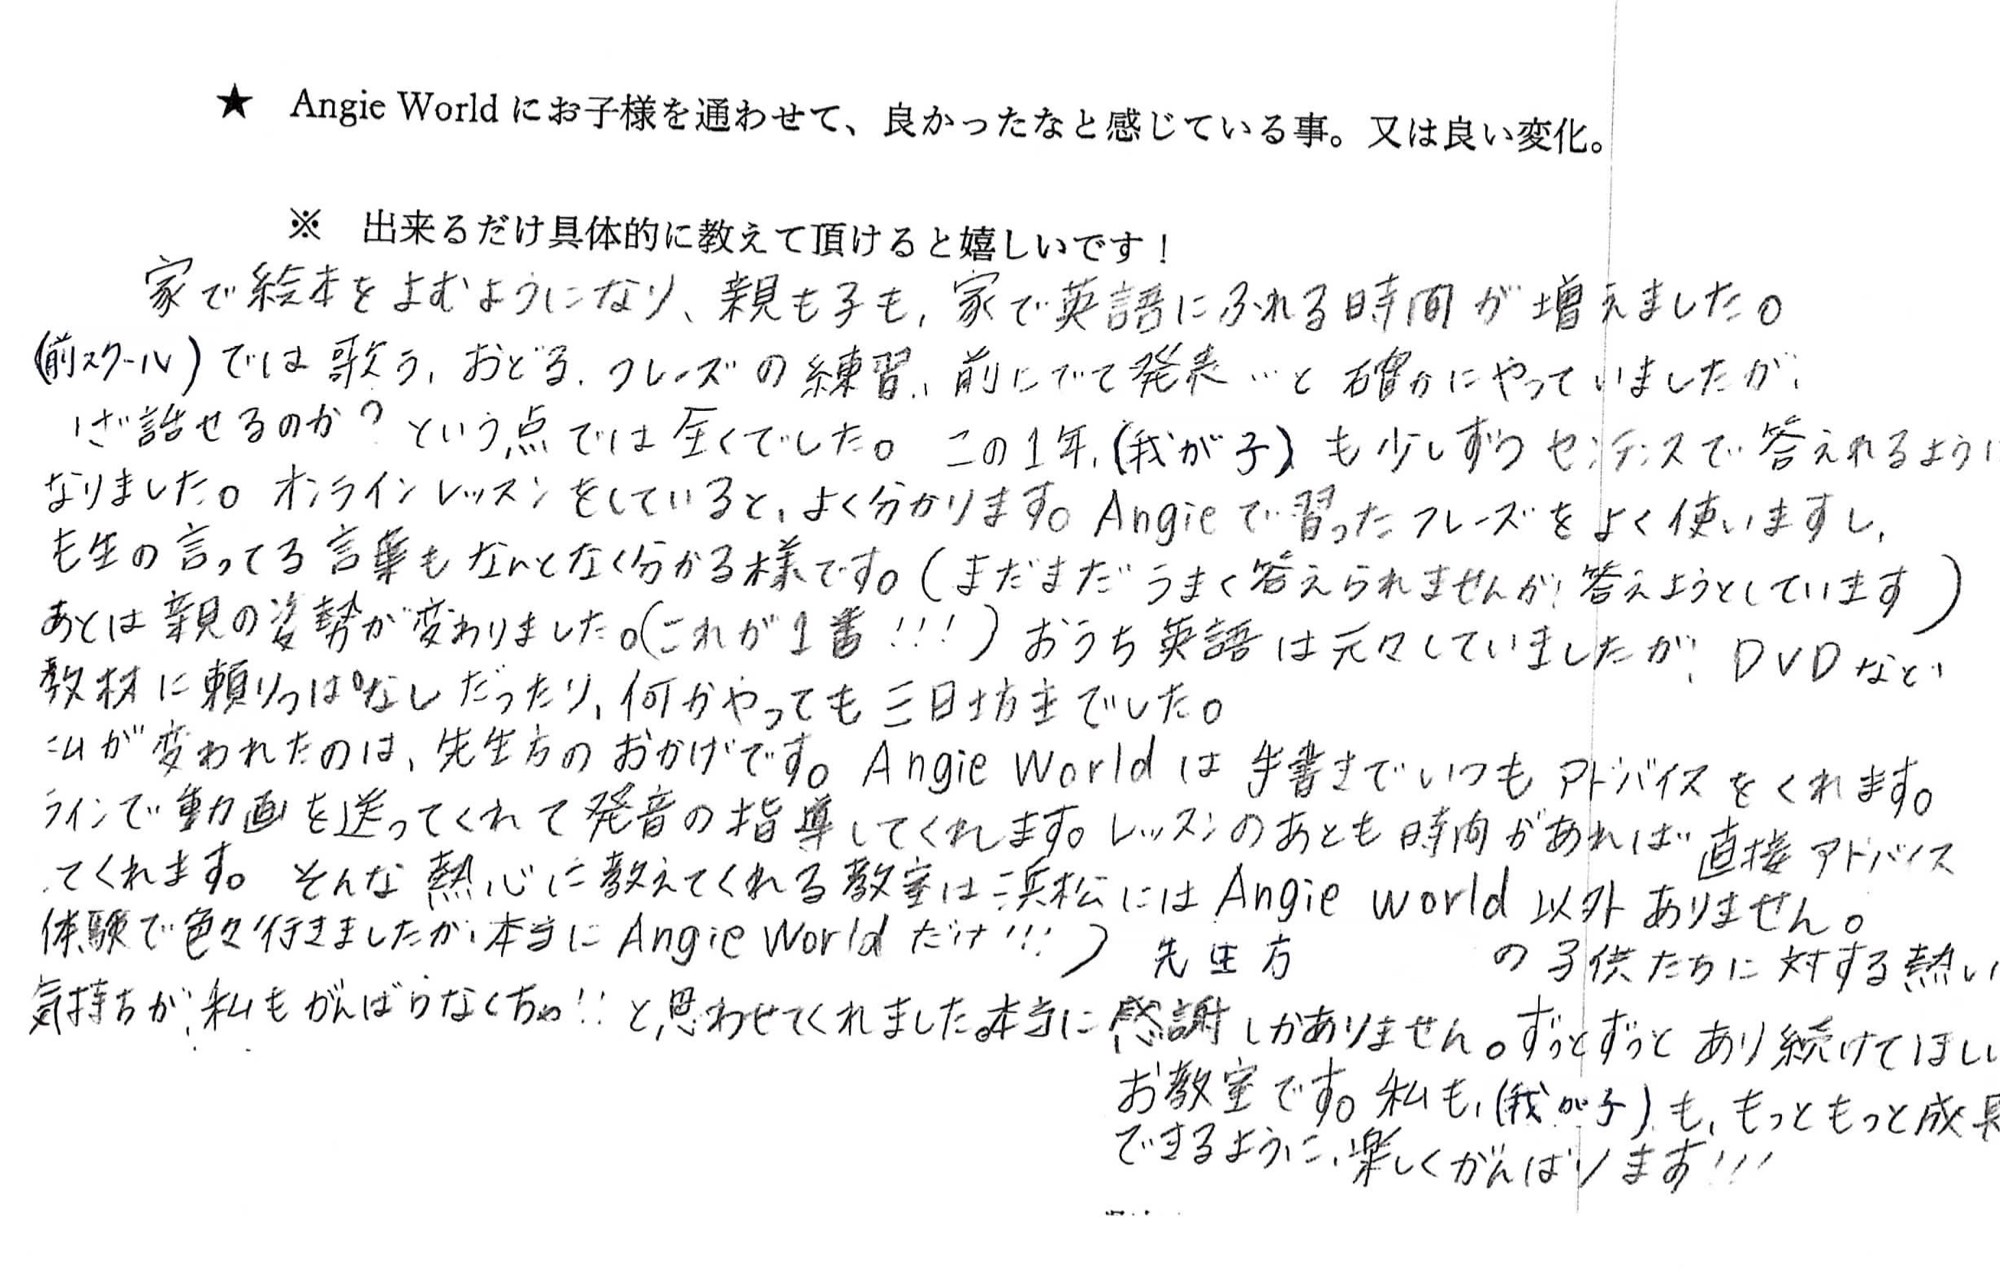 ★ Angie Worldにお子様を通わせて、良かったなと感じている事。又は良い変化。
※ 出来るだけ具体的に教えて頂けると嬉しいです！
家で絵本をよむようになり、親も子も、家で英語にふれる時間が増えました。
(前スクール)では歌う、おどる、フレーズの練習、前にでて発表…と確かにやっていましたが、
いざ話せるのか？という点では全くでした。この1年、(我が子)も少しずつセンテンスで答えれるように
なりました。オンラインレッスンをしていると、よく分かります。Angieで習ったフレーズをよく使いますし、
先生の言ってる言葉もなんとなく分かる様です。(まだまだうまく答えられませんが、答えようとしています)
あとは親の姿勢が変わりました。(これが1番!!!)おうち英語は元々していましたが、DVDなど
教材に頼りっぱなしだったり、何かやっても三日坊主でした。
私が変われたのは、先生方のおかげです。Angie Worldは手書きでいつもアドバイスをくれます。
ラインで動画を送ってくれて発音の指導してくれます。レッスンのあとも時間があれば直接アドバイス
てくれます。そんな熱心に教えてくれる教室は浜松にはAngie world以外ありません。
体験で色々行きましたが、本当にAngie Worldだけ!!!) 先生方 の子供たちに対する熱い
気持ちが、私もがんばらなくちゃ!!と思わせてくれました。本当に感謝しかありません。ずっとずっとあり続けてほしい
お教室です。私も、(我が子)も、もっともっと成長
できるように、楽しくがんばります!!!